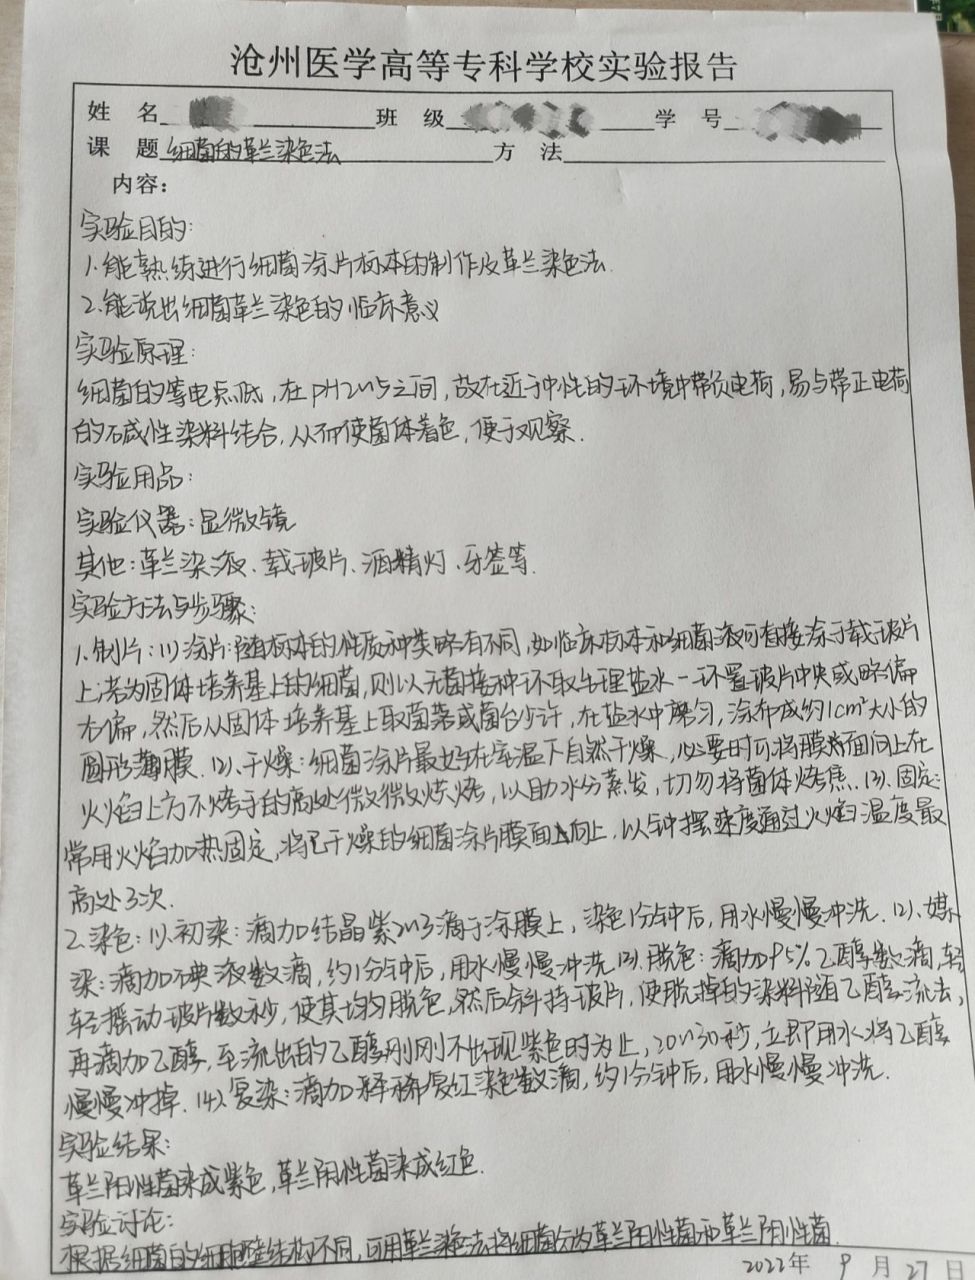 沧州医学高等专科学校实验报告
姓 名 班 级 学 号
课 题 细菌的革兰染色法 方 法
内容：
实验目的：
1.能熟练进行细菌涂片标本的制作及革兰染色法.
2.能说出细菌革兰染色的临床意义
实验原理：
细菌的等电点低，在pH2~5之间，故在近于中性的环境中带负电荷，易与带正电荷
的碱性染料结合，从而使菌体着色，便于观察.
实验用品：
实验仪器：显微镜
其他：革兰染液、载玻片、酒精灯、牙签等.
实验方法与步骤：
1.制片：(1)涂片：随标本的性质种类略有不同，如临床标本和细菌液可直接涂于载玻片
上；若为固体培养基上的细菌，则以无菌接种环取生理盐水一环置玻片中央或略偏
右偏，然后从固体培养基上取菌落或菌苔少许，在盐水中磨匀，涂布成约1cm²大小的
圆形薄膜.(2)、干燥：细菌涂片最好在室温下自然干燥，必要时可将膜面向上在
火焰上方不烤手的高处微微烘烤，以助水分蒸发，切勿将菌体烤焦.(3).固定：
常用火焰加热固定，将已干燥的细菌涂片膜面向上，以钟摆速度通过火焰温度最
高处3次.
2.染色：(1).初染：滴加结晶紫2~3滴于涂膜上，染色1分钟后，用水慢慢冲洗.(2)、媒
染：滴加碘液数滴，约1分钟后，用水慢慢冲洗.(3).脱色：滴加95%乙醇数滴，轻
轻摇动玻片数秒，使其均匀脱色，然后斜持玻片，使脱掉的染料随乙醇流去，
再滴加乙醇，至流出的乙醇刚刚不出现紫色时为止，20~30秒，立即用水将乙醇
慢慢冲掉.(4)、复染：滴加释稀复红染色数滴，约1分钟后，用水慢慢冲洗.
实验结果：
革兰阳性菌染成紫色，革兰阴性菌染成红色.
实验讨论：
根据细菌的细胞壁结构不同，可用革兰染色法将细菌分为革兰阳性菌和革兰阴性菌.
2022年 9 月 27 日